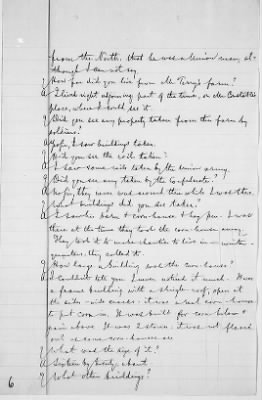 from the North, that he was a Union man, al-
though I can not say.
Q How far did you live from Mr. Terry's farm?
A I lived right adjoining part of the time, on Mr.
place, where I could see it.
Q Did you see any property taken from this farm by
soldiers?
A Yes sir, I saw buildings taken.
Q Did you see the rails taken?
A I saw some rails taken by the Union army.
Q Did you see any taken by the Confederate?
A No sir, they never was around there while I was there.
Q What buildings did you see taken?
A I saw his barn & corn-house & hay pen. I was
there at the time they took the corn-house away.
They took it to make shanties to live in - winter-
quarters, they called it.
Q How large a building was the corn-house?
A I couldn't tell you. I never noticed it much. It was
a frame building with a shingle roof, open at
the sides - it was a real corn-house
to put corn in. It was built for corn below &
grain above. It was 2 stories; it was not placed
out as some corn-houses are.
Q What was the size of it?
A Sixteen by twenty, about.
Q What other buildings?
6